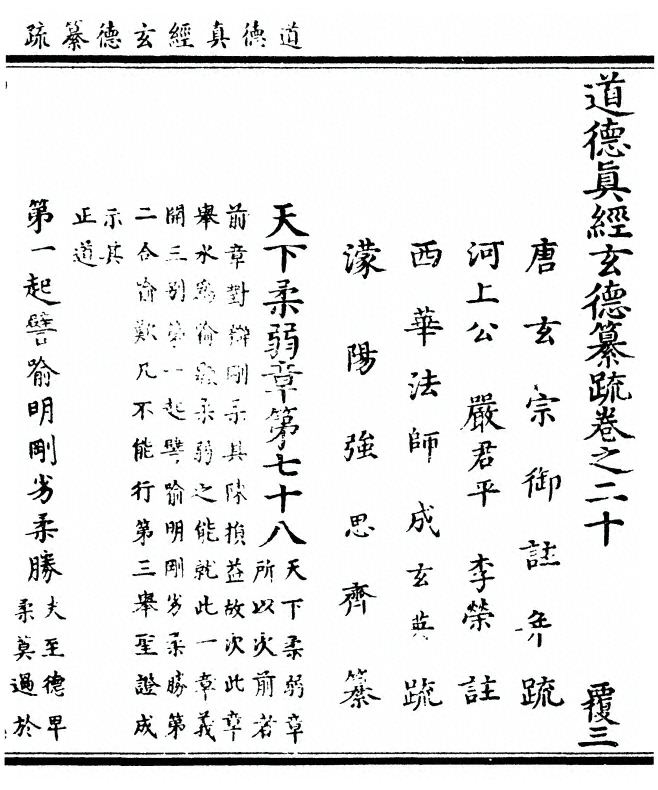 道德真經玄德纂疏
道德眞經玄德纂疏卷之二十 覆三
唐玄宗御註并疏
河上公 嚴君平 李榮註
西華法師成玄英疏
濛陽強思齊纂
天下柔弱章第七十八 天下柔弱章
所以次前者
前章對辯剛柔具陳損益故次此章
舉水爲喻顯柔弱之能就此一章義
開三別第一起譬喻明剛劣柔勝第
二合喻歎凡不能行第三舉聖證成
示其
正道
第一起譬喻明剛劣柔勝 夫至德卑
柔莫過於